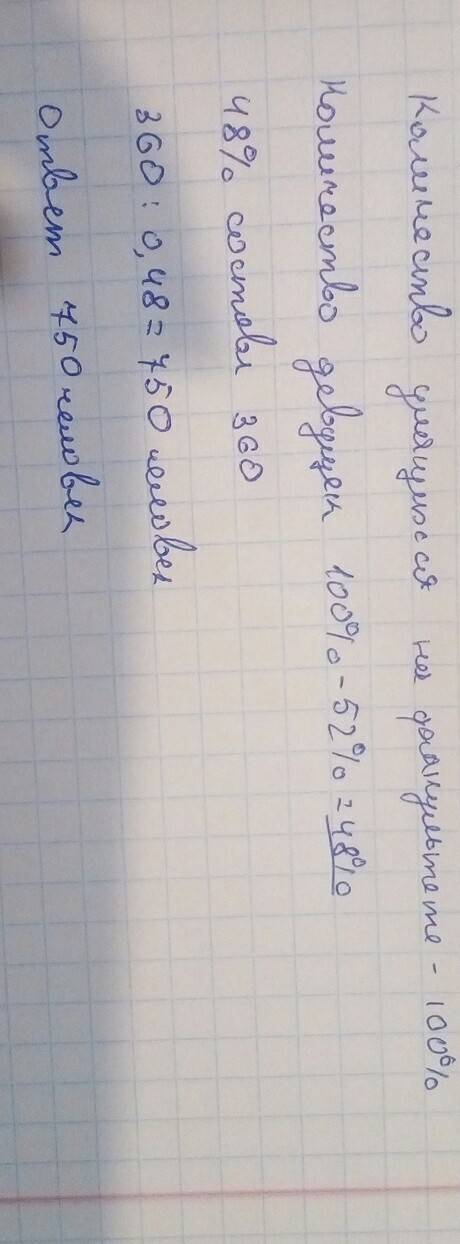 Количество учащихся на факультете - 100%
Количество девушек 100% - 52% = 48%
48% составл 360
360 : 0,48 = 750 человек
Ответ 750 человек